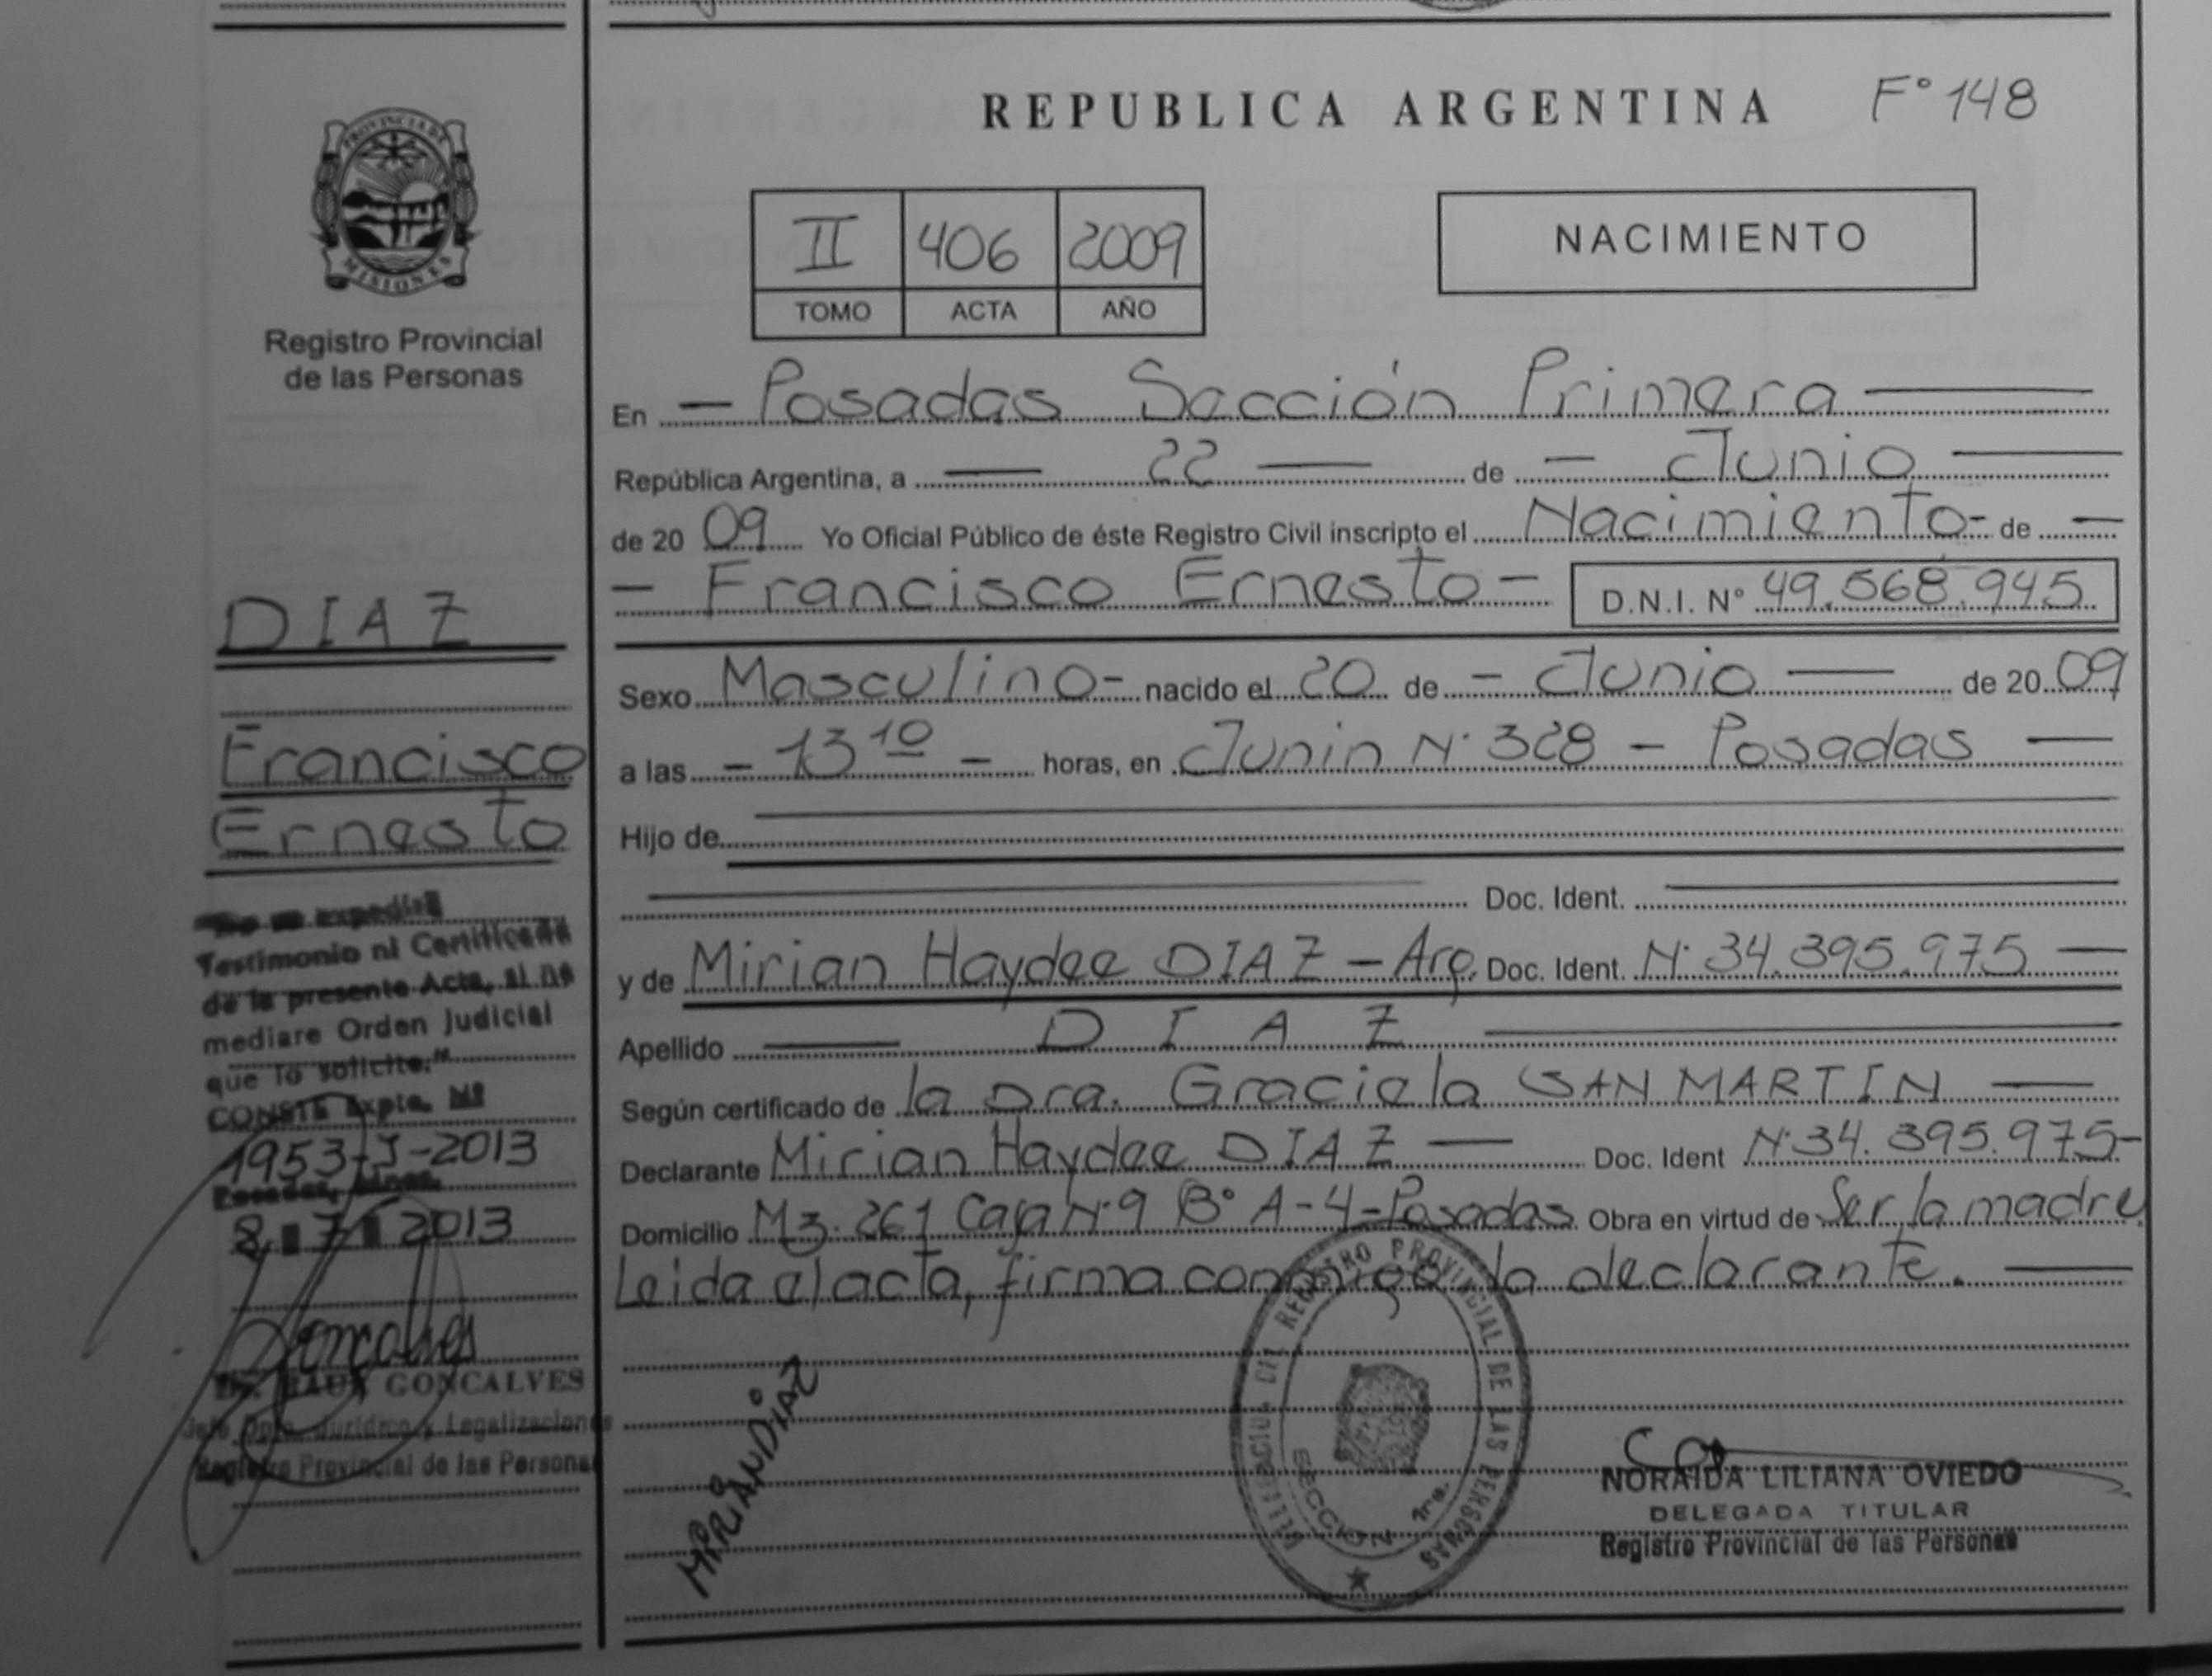 REPUBLICA ARGENTINA F° 148
PROVINCIA DE
MISIONES
Registro Provincial
de las Personas
II 406 2009
TOMO ACTA AÑO
NACIMIENTO
DIAZ
Francisco
Ernesto
"No se expedirá
Testimonio ni Certificado
de la presente Acta, si no
mediare Orden Judicial
que lo solicite."
CONSTE Expte. Nº
1953-J-2013
Posadas, Mnes.
8 7 2013
Goncalves
Dr. RAUL GONCALVES
Jefe Dpto. Jurídico y Legalizaciones
Registro Provincial de las Personas
En - Posadas Sección Primera
República Argentina, a 22 de - Junio
de 20 09 Yo Oficial Público de éste Registro Civil inscripto el Nacimiento - de -
- Francisco Ernesto - D.N.I. Nº 49.568.945
Sexo Masculino - nacido el 20 de - Junio de 20 09
a las - 13 10 - horas, en Junin N· 328 - Posadas
Hijo de
Doc. Ident.
y de Mirian Haydee DIAZ - Arg. Doc. Ident. N· 34.395.975
Apellido DIAZ
Según certificado de la Dra. Graciela SAN MARTIN
Declarante Mirian Haydee DIAZ Doc. Ident N· 34.395.975-
Domicilio Mz. 261 Casa N· 9 B° A-4-Posadas Obra en virtud de Ser la madre
Leida el acta, firma conmigo la declarante.
MiRiANDiAZ
DELEGACION DEL REGISTRO PROVINCIAL DE LAS PERSONAS
SECCION 1ra.
NORAIDA LILIANA OVIEDO
DELEGADA TITULAR
Registro Provincial de las Personas